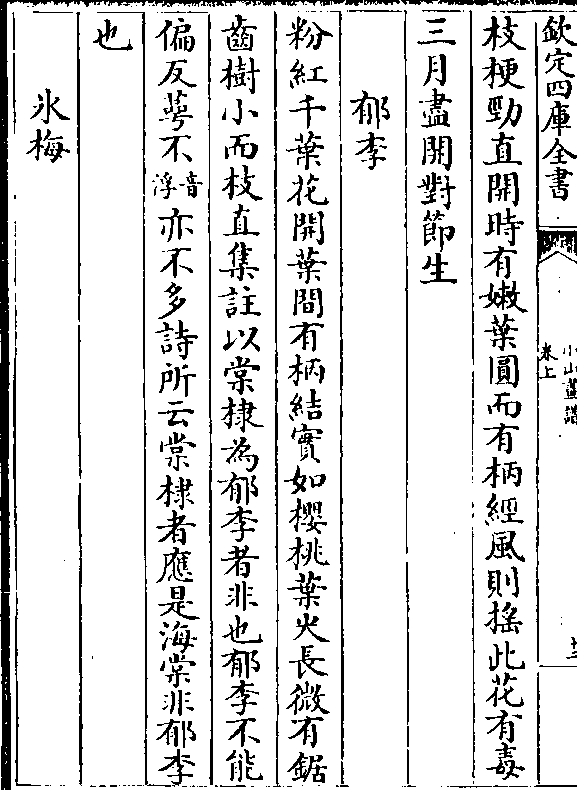 欽定四庫全書
小山畫譜
卷上
枝梗勁直開時有嫩葉圓而有柄經風則揺此花有毒
三月盡開對節生
郁李
粉紅千葉花開葉間有柄結實如櫻桃葉火長微有鋸
齒樹小而枝直集註以棠棣為郁李者非也郁李不能
偏反萼不音浮亦不多詩所云棠棣者應是海棠非郁李
也
氷梅